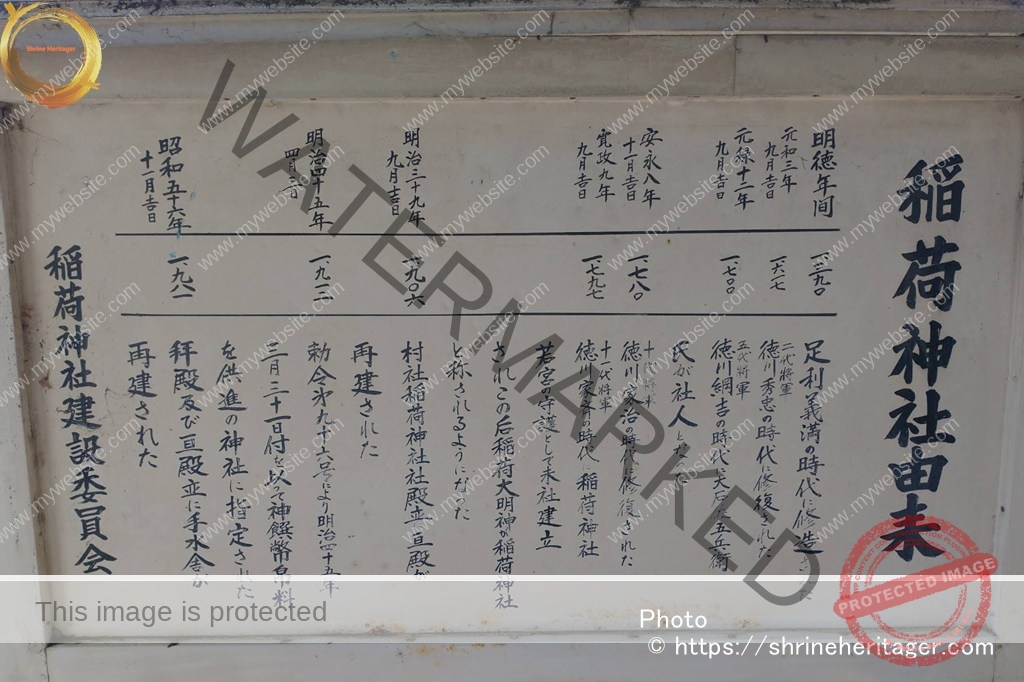 稲荷神社由来
明徳年间 一三九〇 足利義満の時代に修造された
元和三年 九月吉日 一六一七 二代将軍 徳川秀忠の時代に修復された
元禄十三年 九月吉日 一七〇〇 五代将軍 徳川綱吉の時代に 五兵衛
氏が社人となった
安永八年 十一月吉日 一七八〇 十代将軍 徳川家治の時代に修復された
寛政九年 九月吉日 一七九七 十一代将軍 徳川家斉の時代に稲荷神社
若宮の守護として末社建立
されこの后稲荷大明神が稲荷神社
と称されるようになった
明治三十九年 九月吉日 一九〇六 村社稲荷神社社殿並亘殿が
再建された
明治四十五年 四月 一九一二 勅令第九十六号により明治四十五年
三月三十一日付を以って神饌幣帛料
を供進の神社に指定された
昭和五十六年 十一月吉日 一九八一 拝殿及び亘殿並に手水舎が
再建された
稲荷神社建設委員会
Shrine Heritager
www.mywebsite.com
WATERMARKED
PROTECTED IMAGE
This image is protected
Photo
© https://shrineheritager.com